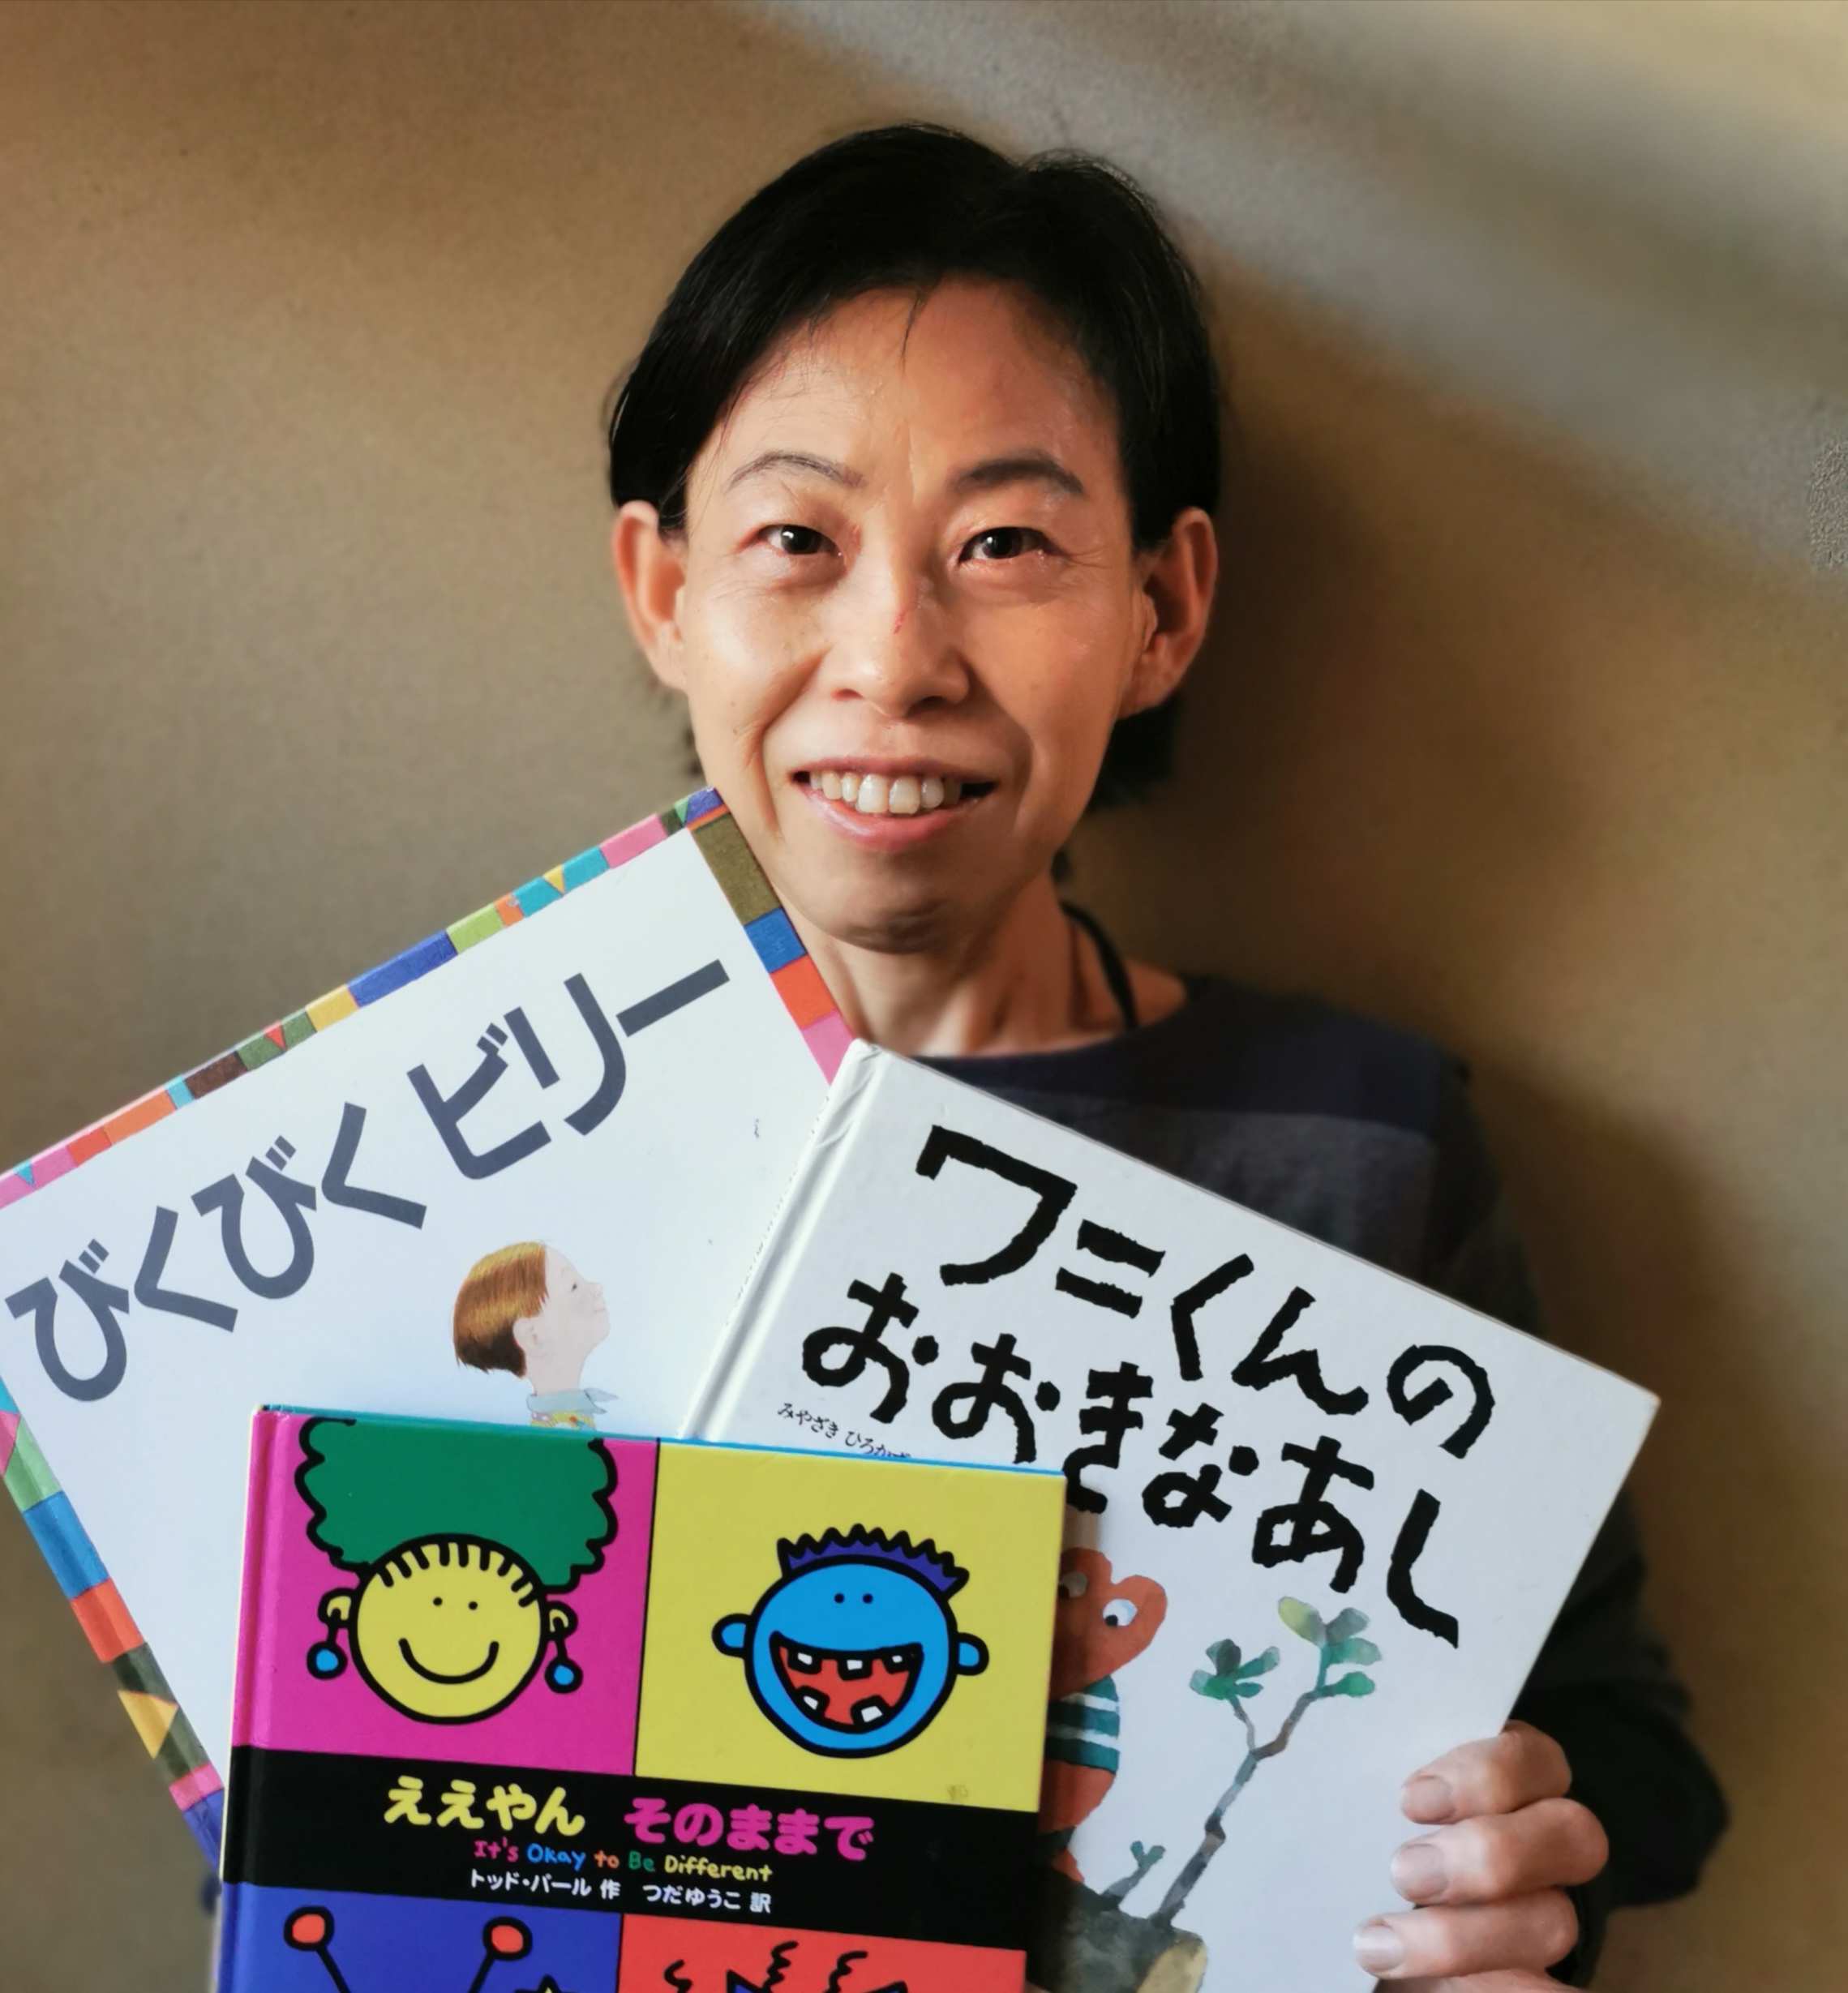 びくびくビリー
ワニくんの
おおきなあし
みやざき ひろかず
ええやん そのままで
It's Okay to Be Different
トッド・パール 作 つだゆうこ 訳